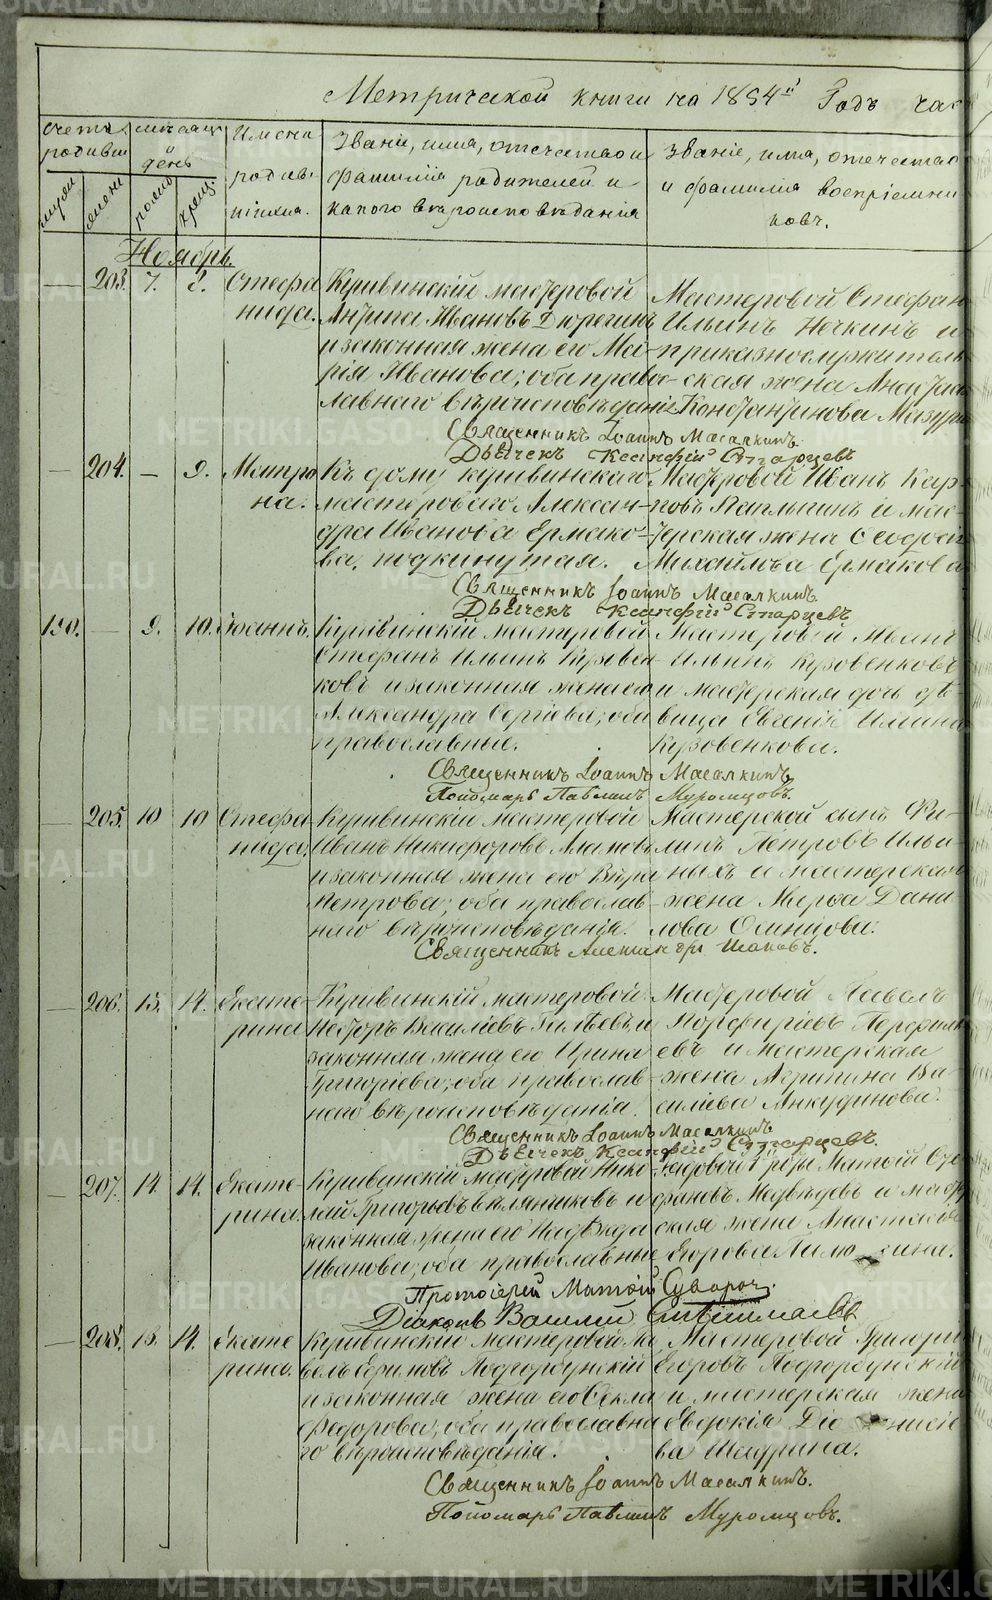 Метрической книги на 1854й Годъ час
Счетъ родивш
мужеска
женска
мѣсяцъ и день
рожд
крещ
Имена родив-
шихся.
Званіе, имя, отечество и
фамилія родителей и
какого вѣроисповѣданія
Званіе, имя, отечество
и фамилія воспріемни
ковъ.
Ноябрь.
— 203. 7. 8. Стефа
нида.
Кушвинскій мастеровой
Антипа Ивановъ Дюрягинъ
и законная жена его Ма-
рія Иванова; оба право-
славнаго вѣроисповѣданія
Мастеровой Стефанъ
Ильинъ Нечкинъ и
приказнослужитель-
ская жена Анастас
Константинова Мазур
Священникъ Іоаннъ Масалкинъ
Дьячекъ Ксенофій Старцевъ
— 204. — 9. Матро
на.
Къ дому кушвинскаго
мастероваго Алексан-
дра Иванова Ермако-
ва, подкинутая.
Мастеровой Иванъ Кар-
повъ Паплыгинъ и мас-
терская жена
Михайлова Ермакова
Священникъ Іоаннъ Масалкинъ
Дьячекъ Ксенофій Старцевъ
190. — 9. 10. Іоаннъ.
Кушвинскій мастеровой
Стефанъ Ильинъ Кузовен-
ковъ и законная жена его
Александра Сергіева; оба
православные.
Мастеровой Иванъ
Ильинъ Кузовенковъ
и мастерская дочь дѣ-
вица Евгенія Ильина
Кузовенкова.
Священникъ Іоаннъ Масалкинъ
Пономарь Павлинъ Муромцовъ.
— 205. 10 10 Стефа
нида.
Кушвинскій мастеровой
Иванъ Никифоровъ
и законная жена его Вѣра
Петрова; оба православ-
наго вѣроисповѣданія.
Мастерской сынъ Фи-
липъ Петровъ Ильи-
ныхъ и мастерская
жена Марѳа Дани-
лова
Священникъ Александръ Поповъ.
— 206. 13. 14. Екате-
рина
Кушвинскій мастеровой
Несторъ Василіевъ и
законная жена его Ирина
Григоріева; оба православ-
наго вѣроисповѣданія.
Мастеровой Павелъ
Порфиріевъ Перфиль
евъ и мастерская
жена Агрипина Ва-
силіева Анкудинова.
Священникъ Іоаннъ Масалкинъ
Дьячекъ Ксенофій Старцевъ.
— 207. 14. 14. Екате-
рина.
Кушвинскій мастеровой Нико-
лай Григорьевъ и
законная жена его Надежда
Иванова; оба православные
Матѳій Сте
фановъ Медвѣдевъ и масте
ская жена Анастасія
Егорова
Протоіерей Матѳій Суворов.
Діаконъ Василій
— 208. 13. 14. Екате
рина.
Кушвинскій мастеровой
Ефимовъ Подгорбунскій
и законная жена его Ѳекла
Ѳедорова; оба православна
го вѣроисповѣданія.
Мастеровой Григорій
Егоровъ Подгорбунскій
и мастерская жена
Евдокія Діонисіе
ва Шмурина.
Священникъ Іоаннъ Масалкинъ.
Пономарь Павлинъ Муромцовъ.
METRIKI.GASO-URAL.RU